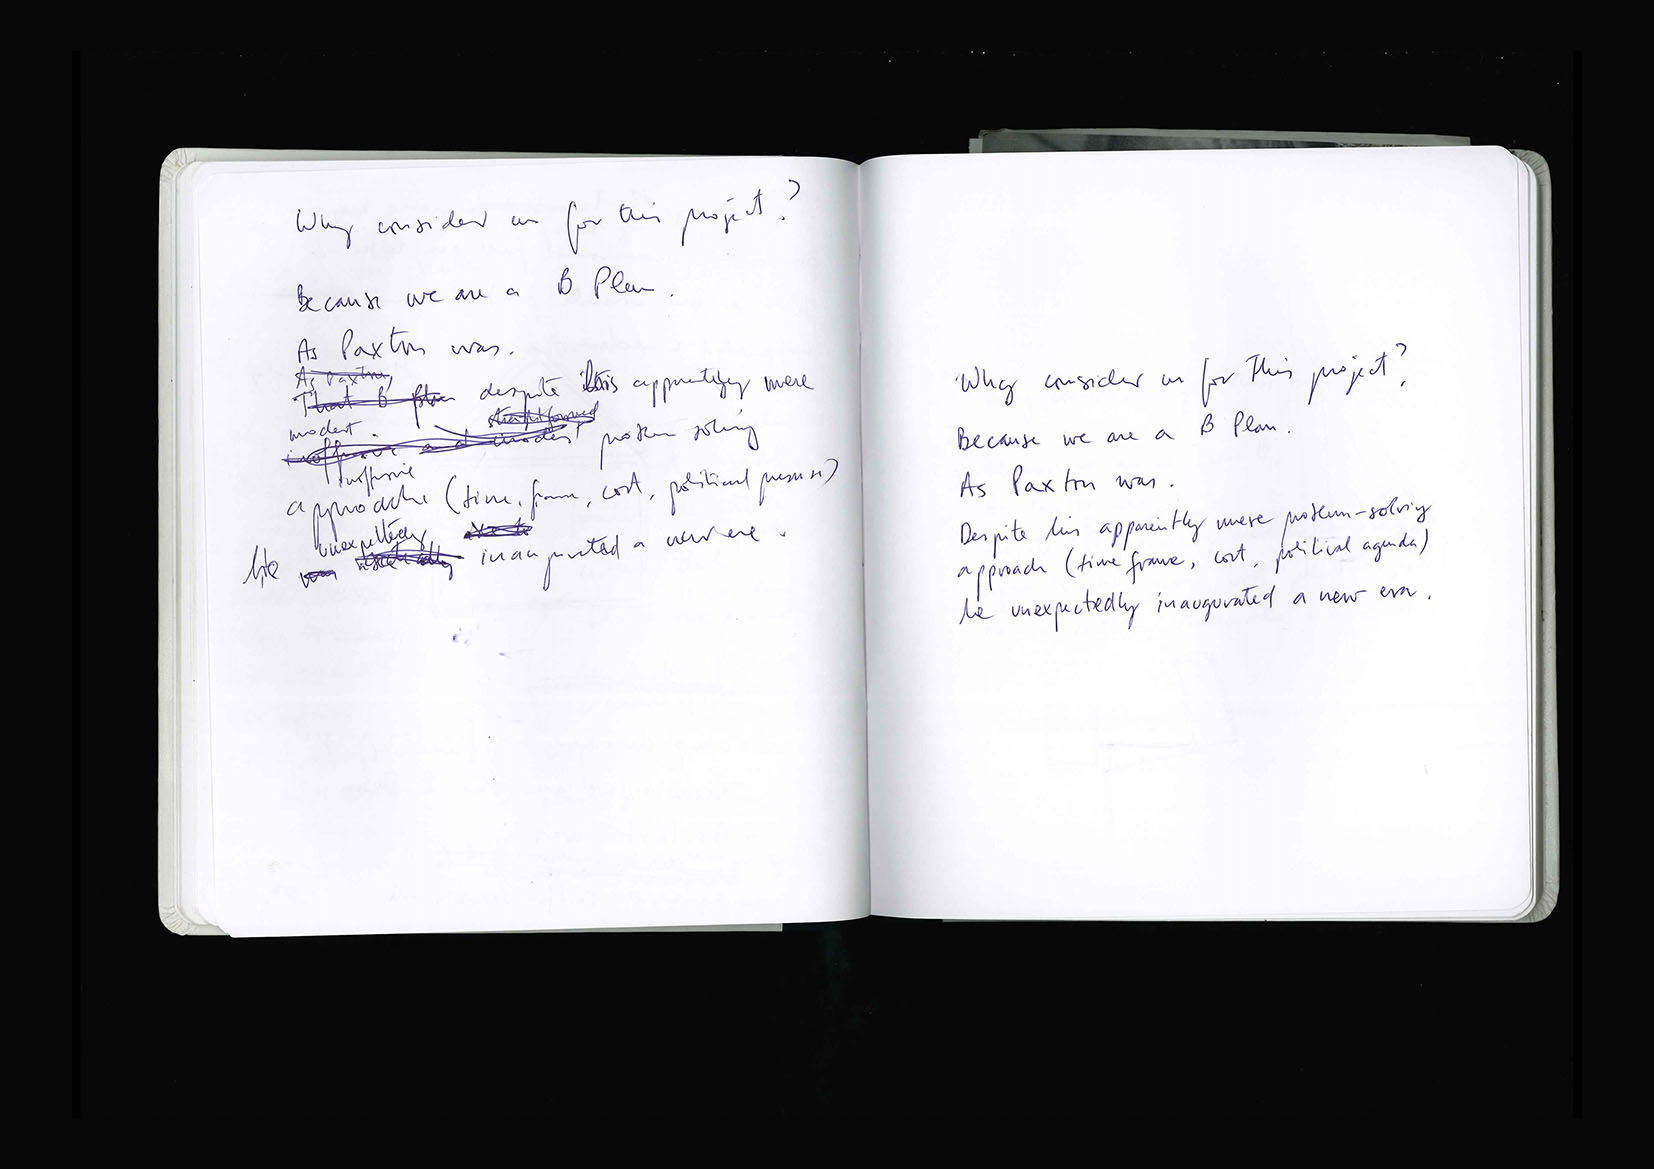 Why consider us for this project?
Because we are a B Plan.
As Paxton was.
As Paxton,
That B plan despite his apparently mere
modest straightforward
inoffensive and modest problem solving
inoffensive
approache (time, frame, cost, political pressure)
unexpectedly
he was inaugurated a new era.
Why consider us for this project?
Because we are a B Plan.
As Paxton was.
Despite his apparently mere problem-solving
approach (time frame, cost, political agenda)
he unexpectedly inaugurated a new era.